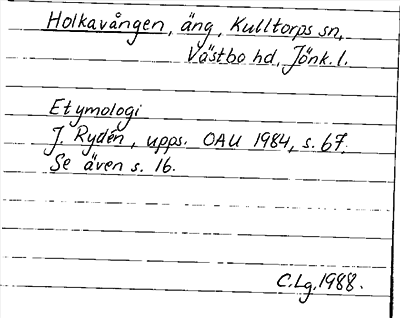 Holkavången, äng, Kulltorps sn,
Västbo hd, Jönk. l.
Etymologi
J. Rydén, upps. OAU 1984, s. 67.
Se även s. 16.
C.Lg. 1988.